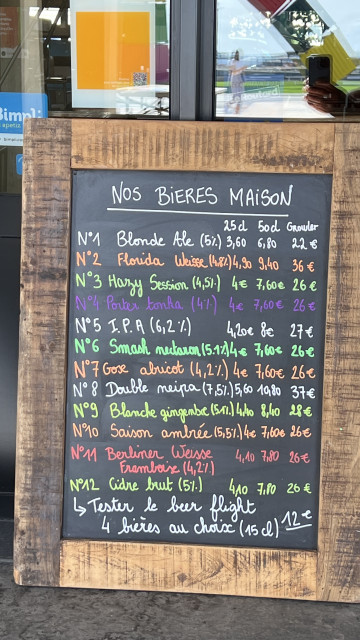 Bimpli
NOS BIERES MAISON
25cl 50cl Growler
N°1 Blonde Ale (5%) 3,60 6,80 22€
N°2 Florida Weisse (4,8%) 4,90 9,40 36€
N°3 Hazy Session (4,5%) 4€ 7,60€ 26€
N°4 Porter tonka (4%) 4€ 7,60€ 26€
N°5 I.P.A (6,2%) 4,20€ 8€ 27€
N°6 Smash nectaron (5.1%) 4€ 7,60€ 26€
N°7 Gose abricot (4,2%) 4€ 7,60€ 26€
N°8 Double neipa (7,5%) 5,60 10,80 37€
N°9 Blanche gingembre (5.1%) 4,40 8,40 28€
N°10 Saison ambrée (5,5%) 4€ 7,60€ 26€
N°11 Berliner Weisse 4,10 7,80 26€
Framboise (4,2%)
N°12 Cidre brut (5%) 4,10 7,80 26€
↳ Tester le beer flight
4 bières au choix (15cl) 12€